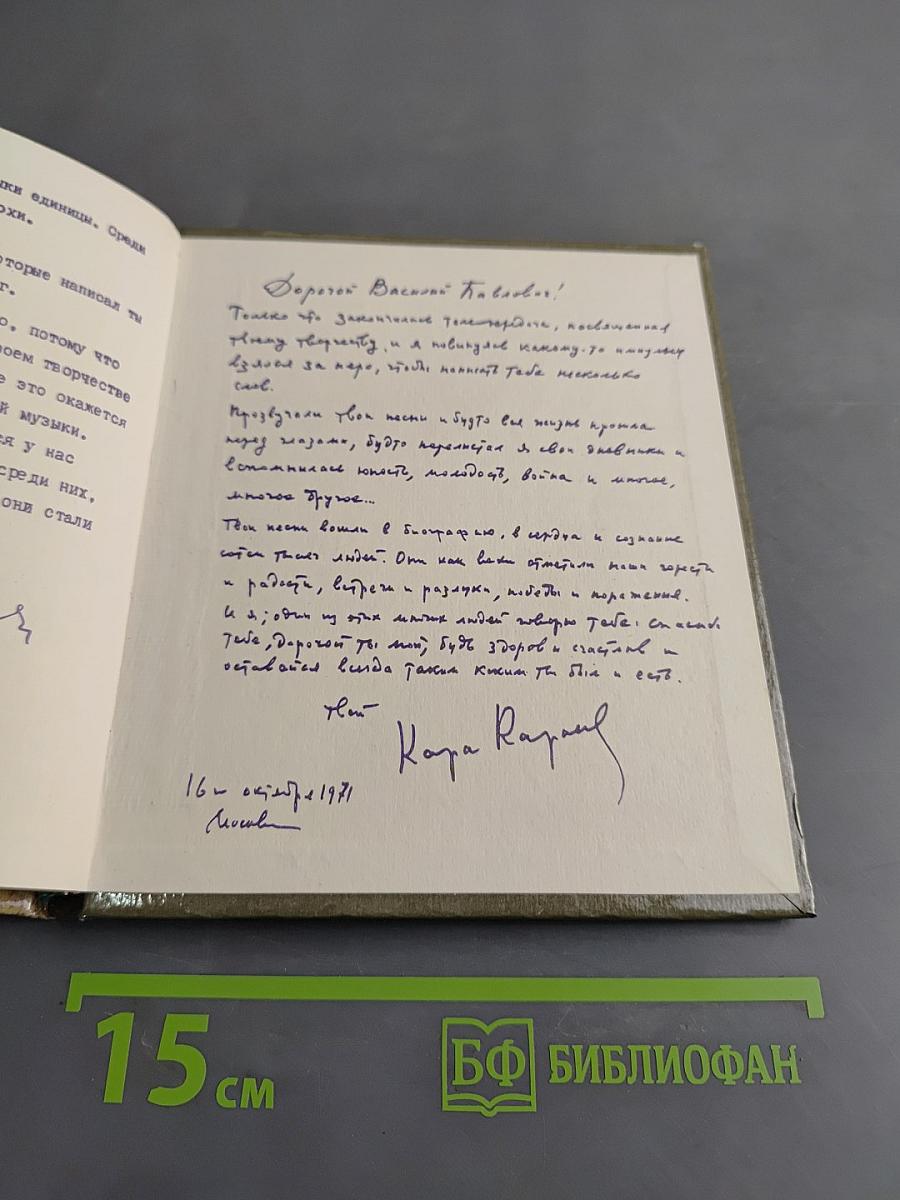 ики единицы. Среди
охи.
оторые написал ты
г.
о, потому что
воем творчестве
е это окажется
й музыки.
ся у нас
среди них,
они стали
Дорогой Василий Павлович!
Только что закончилась телепередача, посвященная
твоему творчеству, и я повинуясь какому-то импульсу
взялся за перо, чтобы написать тебе несколько
слов.
Прозвучали твои песни и будто вся жизнь прошла
перед глазами, будто перелистал я свои дневники и
вспомнилась юность, молодость, война и многое,
многое другое...
Твои песни вошли в биографию, в сердца и сознание
сотен тысяч людей. Они как вехи отметили наши горести
и радости, встречи и разлуки, победы и поражения.
И я, один из этих многих людей говорю тебе: спасибо
тебе, дорогой ты мой, будь здоров и счастлив и
оставайся всегда таким каким ты был и есть.
твой
Кара Караев
16го октября 1971
Москва
15 см
БФ БИБЛИОФАН